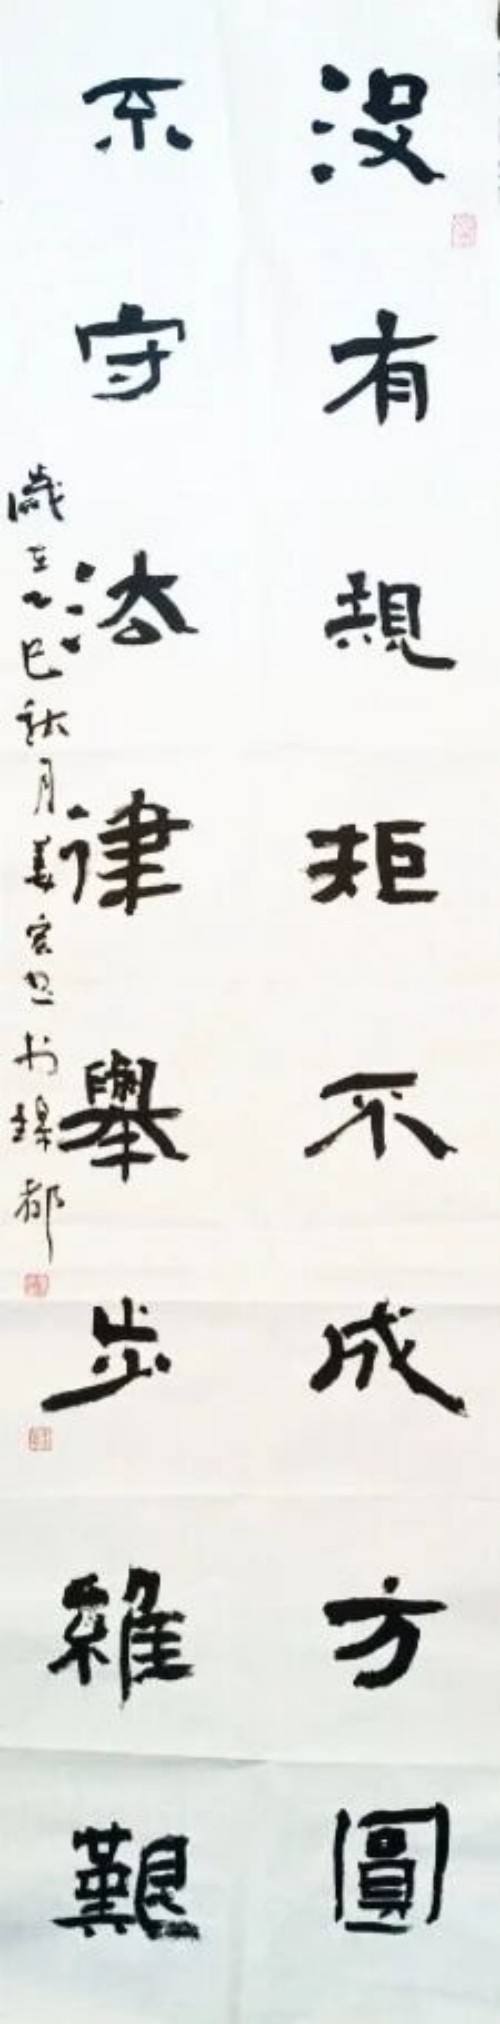 没有規矩不成方圓
不守法律舉步維艱
歲在乙巳秋月姜宏書於瑞都